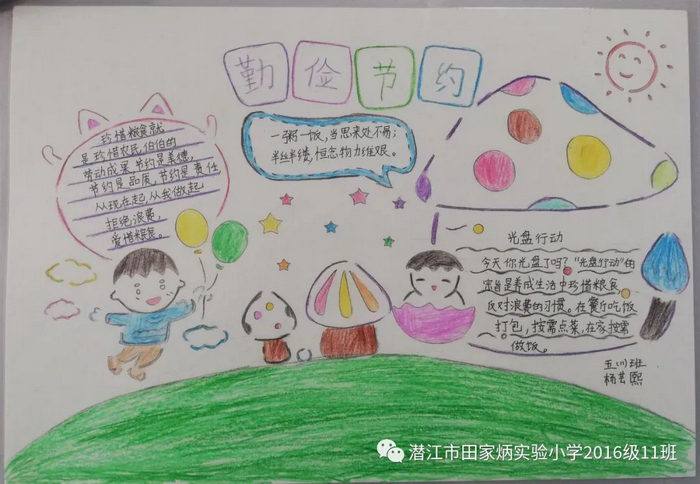 勤俭节约
珍惜粮食就
是珍惜农民伯伯的
劳动成果,节约是美德,
节约是品质,节约是责任
从现在起,从我做起
拒绝浪费,
爱惜粮食。
一粥一饭,当思来处不易;
半丝半缕,恒念物力维艰。
光盘行动
今天你光盘了吗?“光盘行动”的
宗旨是养成生活中珍惜粮食,
反对浪费的习惯。在餐厅吃饭
打包,按需点菜,在家按需
做饭。
五(11)班
杨芸熙
潜江市田家炳实验小学2016级11班